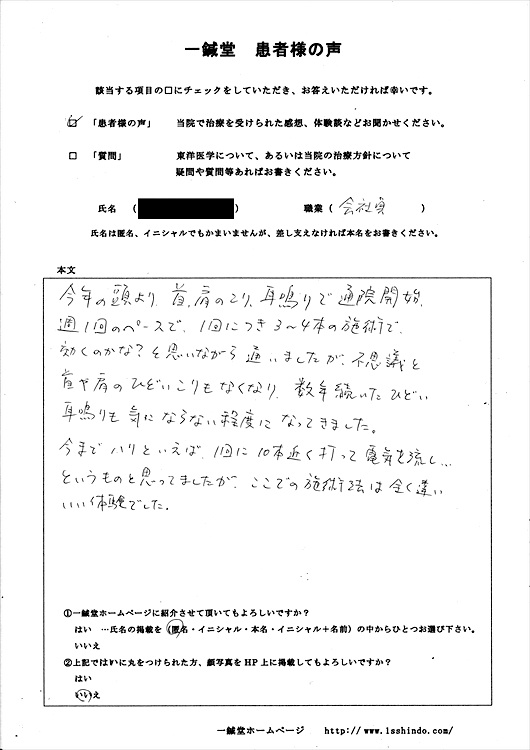 一鍼堂 患者様の声
該当する項目の□にチェックをしていただき、お答えいただければ幸いです。
☑ 「患者様の声」 当院で治療を受けられた感想、体験談などお聞かせください。
□ 「質問」 東洋医学について、あるいは当院の治療方針について
疑問や質問等あればお書きください。
氏名 ( ) 職業 ( 会社員 )
氏名は匿名、イニシャルでもかまいませんが、差し支えなければ本名をお書きください。
本文
今年の頭より、首、肩のこり、耳鳴りで通院開始。
週1回のペースで、1回につき3〜4本の施術で、
効くのかな?と思いながら通いましたが、不思議と
首や肩のひどいこりもなくなり、数年続いたひどい
耳鳴りも気にならない程度になってきました。
今までハリといえば、1回に10本近く打って電気を流し…
というものと思ってましたが、ここでの施術法は全く違い
いい体験でした。
①一鍼堂ホームページに紹介させて頂いてもよろしいですか?
はい …氏名の掲載を(匿名・イニシャル・本名・イニシャル+名前)の中からひとつお選び下さい。
いいえ
②上記ではいに丸をつけられた方、顔写真をHP上に掲載してもよろしいですか?
はい
いいえ
一鍼堂ホームページ http://www.1sshindo.com/